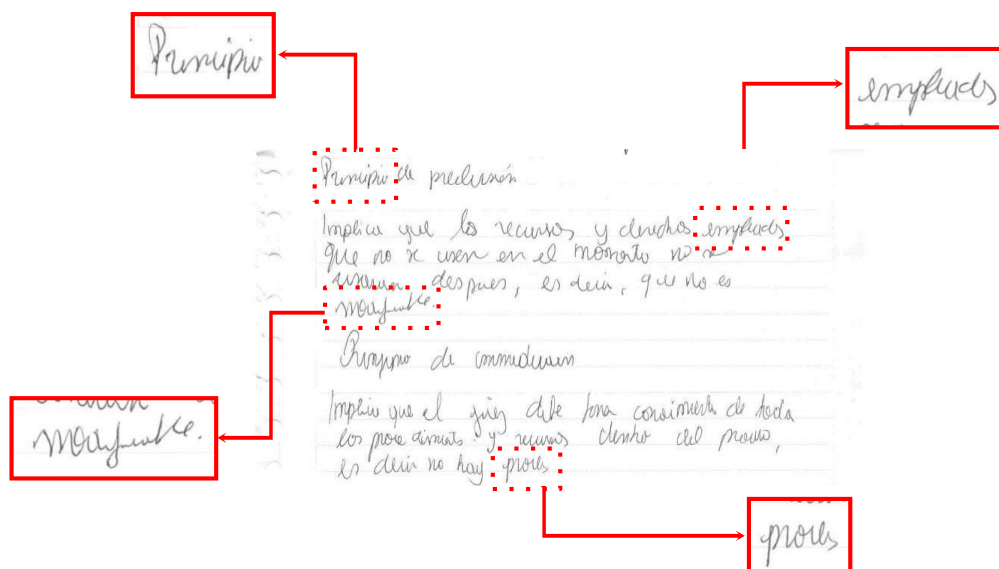 Principio
empleados
Principio de preclusión
Implica que los recursos y derechos empleados
que no se usen en el momento no se
usaran despues, es decir, que no es
modificable.
Principio de inmediacion
Implica que el juez debe tener conocimiento de todo
los procedimientos y recursos dentro del proceso,
es decir no hay
modificable.